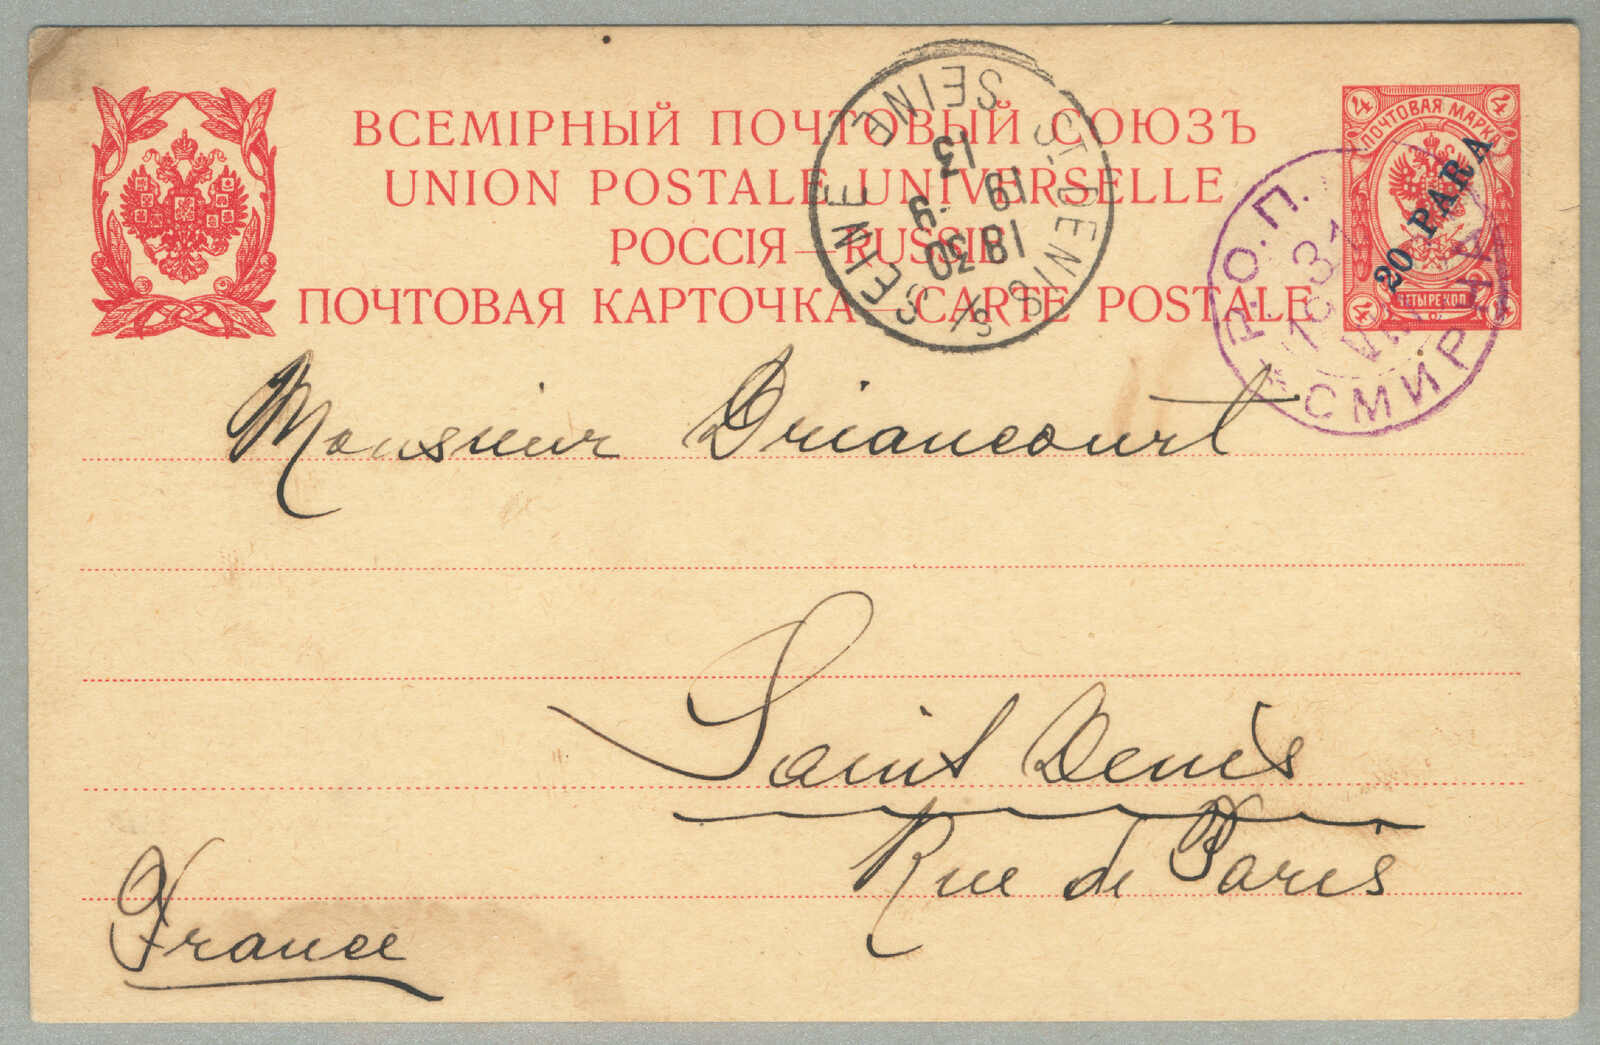 ВСЕМІРНЫЙ ПОЧТОВЫЙ СОЮЗЪ
UNION POSTALE UNIVERSELLE
РОССІЯ — RUSSIE
ПОЧТОВАЯ КАРТОЧКА — CARTE POSTALE
4 4
ПОЧТОВАЯ МАРКА
20 PARA
ЧЕТЫРЕ КОП.
4
ST DENIS S/ SEINE
SEINE
18 30
19
13
Р.О.П.
СМИРНА
Monsieur Driancourt
Saint Denis
Rue de Paris
France